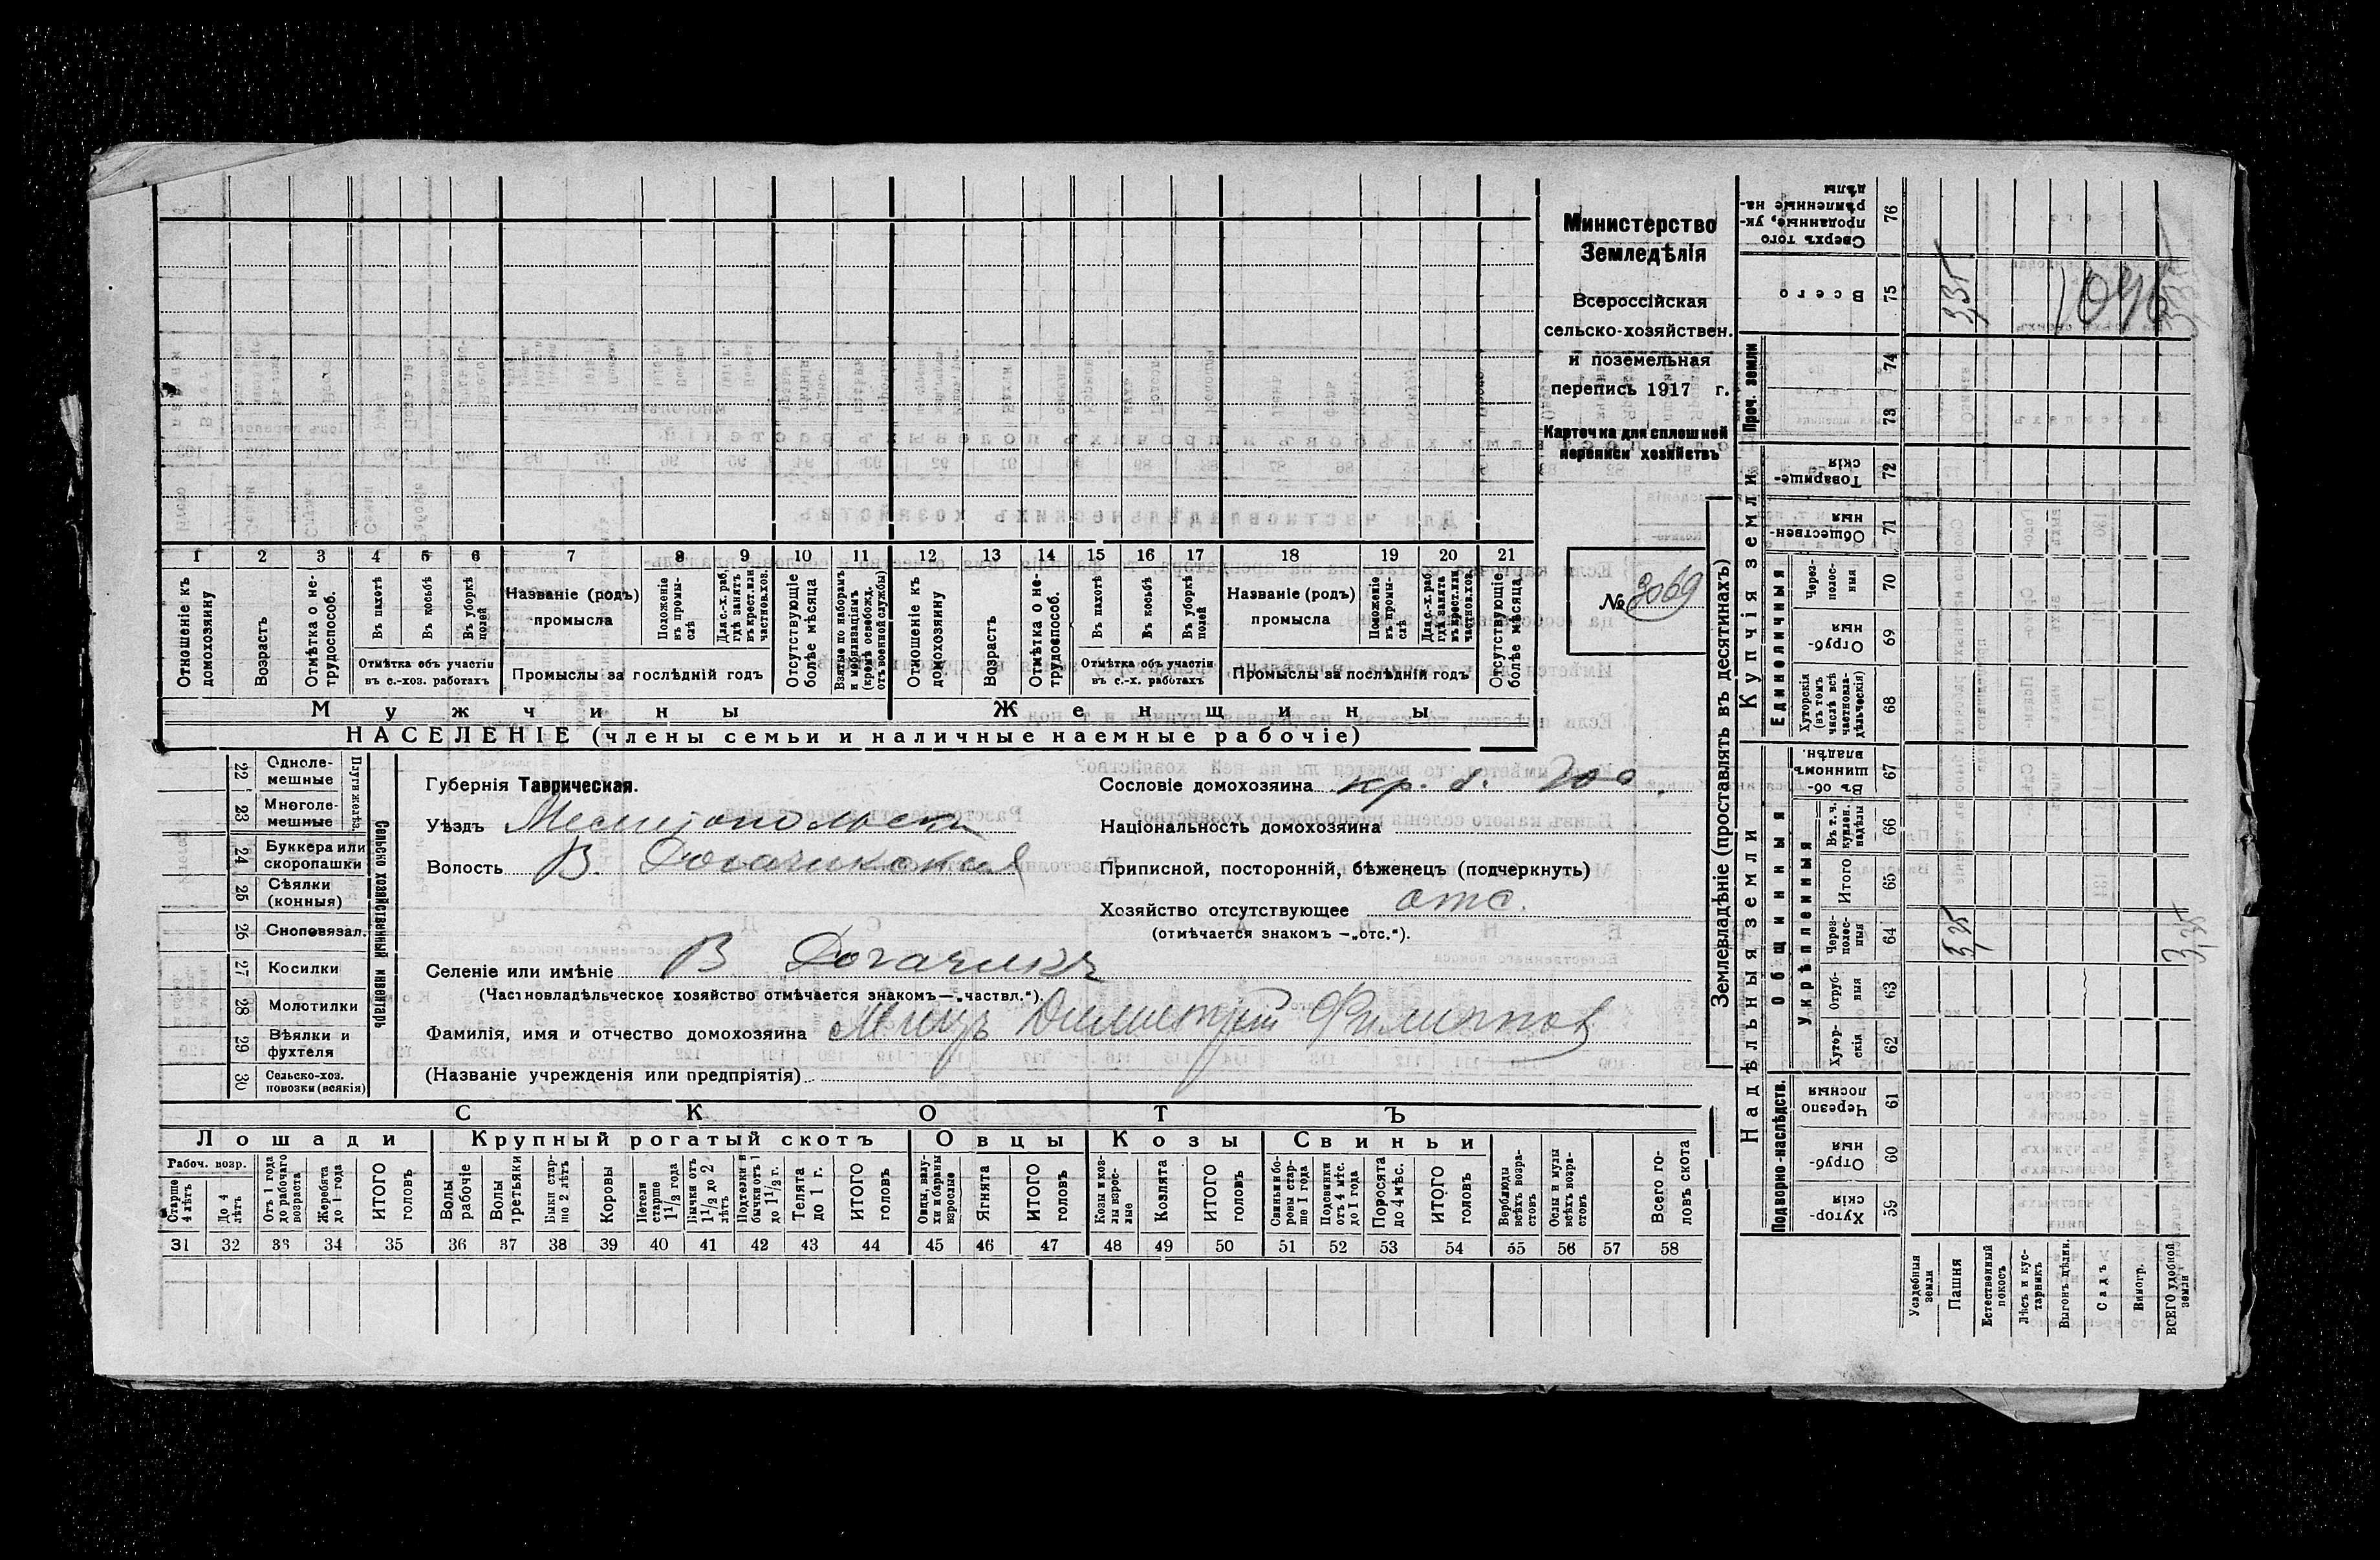 Министерство
Земледѣлія
Всероссійская
сельско-хозяйствен.
и поземельная
перепись 1917 г.
Карточка для сплошной
переписи хозяйствъ
№ 3069
1 2 3 4 5 6 7 8 9 10 11 12 13 14 15 16 17 18 19 20 21
Отношеніе къ домохозяину
Возрастъ
Отмѣтка о не-трудоспособ.
Въ пахотѣ
Въ косьбѣ
Въ уборкѣ полей
Отмѣтка объ участіи въ с.-хоз. работахъ
Названіе (родъ) промысла
Положеніе въ промы-слѣ
Для с.-х. раб, гдѣ занятъ въ крест. или частнов. хоз.
Промыслы за послѣдній годъ
Отсутствующіе болѣе мѣсяца
Взятые по наборамъ и мобилизаціямъ (кромѣ освобожд. отъ военной службы)
Отношеніе къ домохозяину
Возрастъ
Отмѣтка о не-трудоспособ.
Въ пахотѣ
Въ косьбѣ
Въ уборкѣ полей
Отмѣтка объ участіи въ с.-х. работахъ
Названіе (родъ) промысла
Положеніе въ промы-слѣ
Для с.-х. раб. гдѣ занята въ крест. или частнов. хоз.
Промыслы за послѣдній годъ
Отсутствующіе болѣе мѣсяца
Мужчины Женщины
НАСЕЛЕНІЕ (члены семьи и наличные наемные рабочіе)
Сельско хозяйственный инвентарь
Плуги колѣз.
22 Однолемешные
23 Многолемешные
24 Буккера или скоропашки
25 Сѣялки (конныя)
26 Сноповязал.
27 Косилки
28 Молотилки
29 Вѣялки и фухтеля
30 Сельско-хоз. повозки (всякія)
Губернія Таврическая.
Уѣздъ Мелитопольскій
Волость В. Рогачикская
Селеніе или имѣніе В Рогачикъ
(Частновладѣльческое хозяйство отмѣчается знакомъ—„частвл.“).
Фамилія, имя и отчество домохозяина Димитрій Филиппов
(Названіе учрежденія или предпріятія)
Сословіе домохозяина кр. б.
Національность домохозяина
Приписной, посторонній, бѣженецъ (подчеркнуть)
Хозяйство отсутствующее отс.
(отмѣчается знакомъ —„отс.“).
СКОТЪ
Лошади Крупный рогатый скотъ Овцы Козы Свиньи
Рабоч. возр.
Старше 4 лѣтъ
До 4 лѣтъ
Отъ 1 года до рабочаго возраста
Жеребята до 1 года
ИТОГО головъ
Волы рабочіе
Волы третьяки
Быки стар-ше 2 лѣтъ
Коровы
Нетели старше 1 1/2 года
Бычки отъ 1 1/2 до 2 лѣтъ
Подтелки и бычки отъ 1 до 1 1/2 г.
Телята до 1 г.
ИТОГО головъ
Овцы, валу-хи и бараны взрослые
Ягнята
ИТОГО головъ
Козы и коз-лы взрос-лые
Козлята
ИТОГО головъ
Свиньи и бо-ровы стар-ше 1 года
Подсвинки отъ 4 мѣс. до 1 года
Поросята до 4 мѣс.
ИТОГО головъ
Верблюды всѣхъ возра-стовъ
Ослы и мулы всѣхъ возра-стовъ
Всего го-ловъ скота
31 32 33 34 35 36 37 38 39 40 41 42 43 44 45 46 47 48 49 50 51 52 53 54 55 56 57 58
Землевладѣніе (проставлять въ десятинахъ)
Надѣльныя земли
Купчія земли
Подворно-наслѣдств.
Общинныя
Укрѣпленныя
Единоличныя
Проч. земли
Сверхъ того проданные, ук-рѣпленные на-дѣлы 76
Всего 75 3,35 1096
74
73
Товарище-скія 72
Обществен-ныя 71
Через-полос-ныя 70
Отруб-ныя 69
Хуторскія (въ томъ числѣ всѣ частновла-дѣльческія) 68
Въ об-щинномъ владѣн. 67
Въ т. ч. куплен. надѣлы 66
Итого 65
Через-полос-ныя 64 3,35 3,35
Отруб-ныя 63
Хутор-скія 62
Черезпо-лосныя 61
Отруб-ныя 60
Хутор-скія 59
Усадебныя земли
Пашня
Естественный покосъ
Лѣсъ и кус-тарникъ
Выгонъ цѣлин.
Садъ
Виногр.
ВСЕГО удобной земли